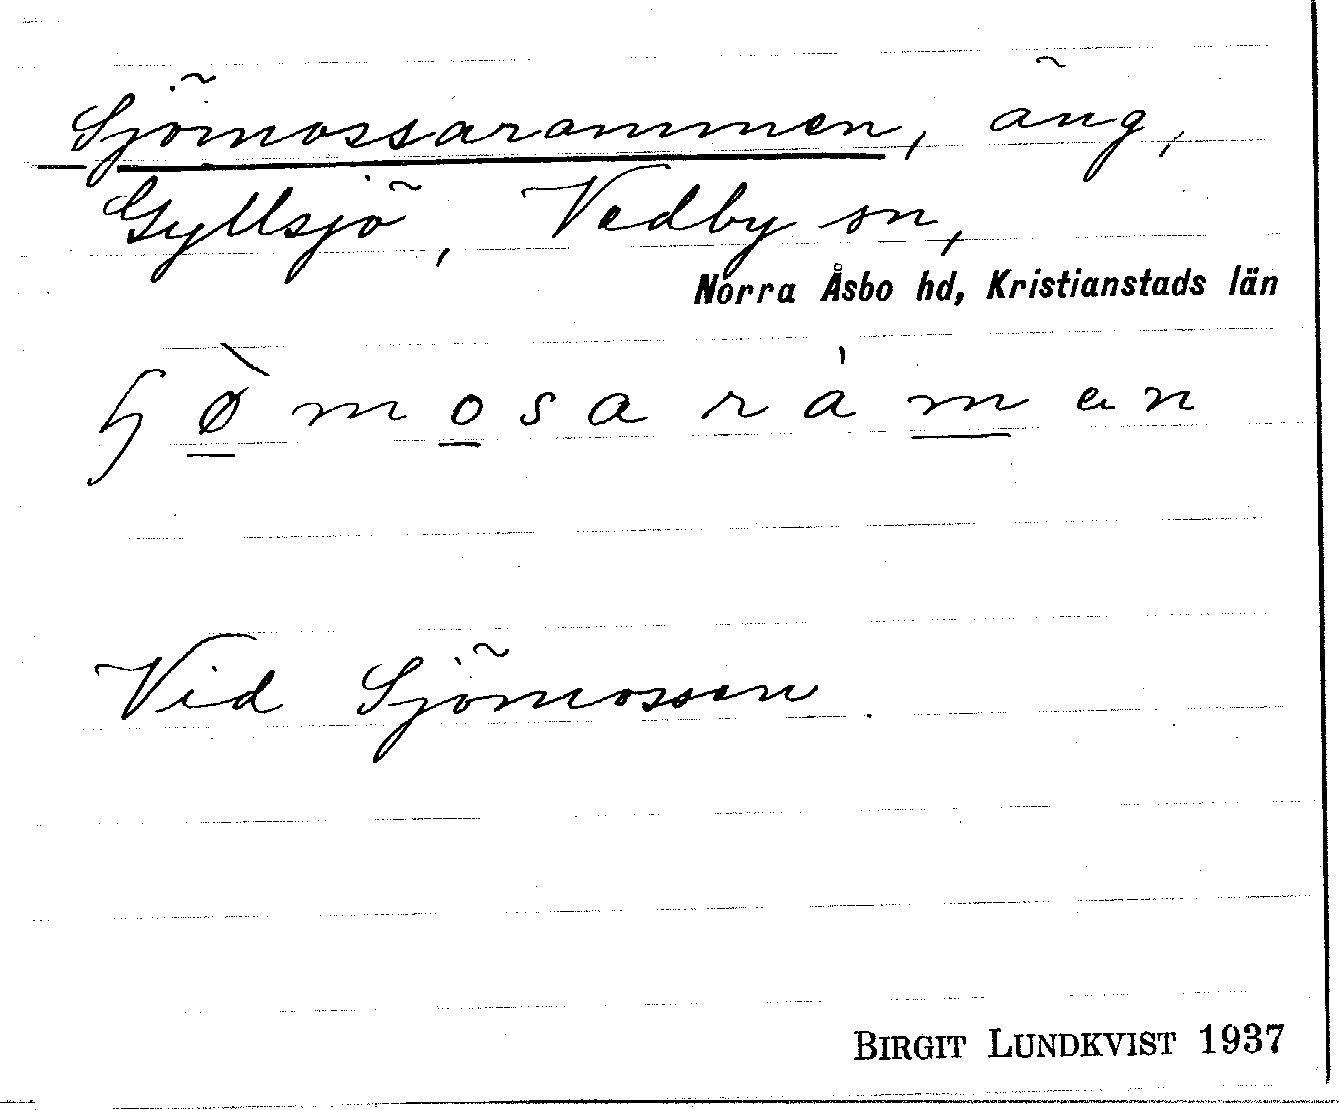 Sjömossarammen, äng,
Gyllsjö, Vedby sn,
Norra Åsbo hd, Kristianstads län
ɧø̀mosaràmen
Vid Sjömossen.
BIRGIT LUNDKVIST 1937